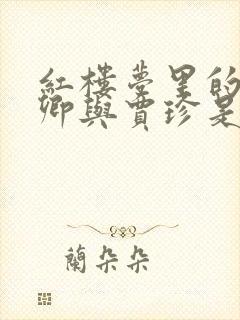 紅樓夢里的
卿與賈珍是
蘭朵朵